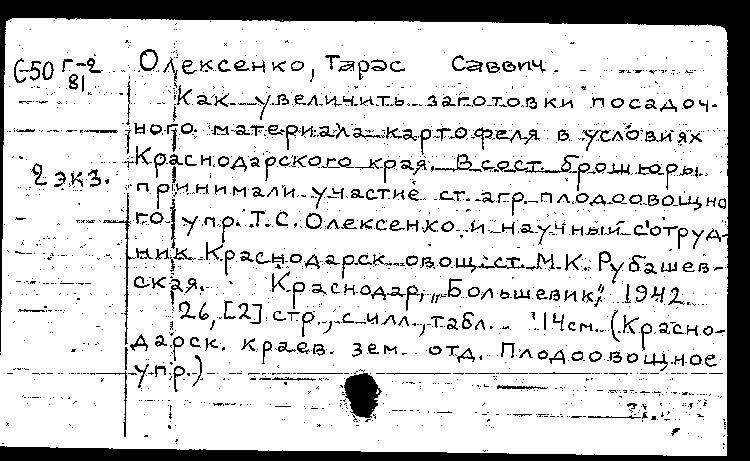 С-50 Г-2
81
2 экз.
Олексенко, Тарас Саввич
Как увеличить заготовки посадоч-
ного материала картофеля в условиях
Краснодарского края. В сост. брошюры
принимали участие ст. агр. плодоовощно
го упр. Т.С. Олексенко и научный сотруд-
ник Краснодарск овощ. ст. М.К. Рубашев-
ская. Краснодар, „Большевик", 1942
26, [2] стр., с илл., табл. 14 см. (Красно-
дарск. краев. зем. отд. Плодоовощное
упр.)